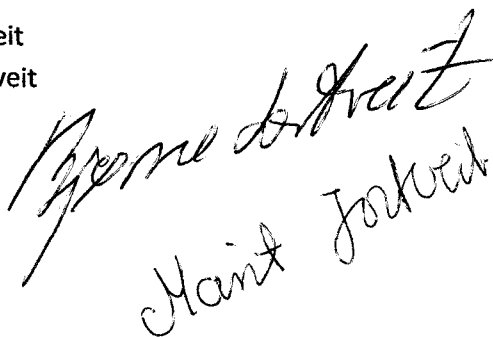 eit
veit
Bjarne Jortveit
Marit Jortveit